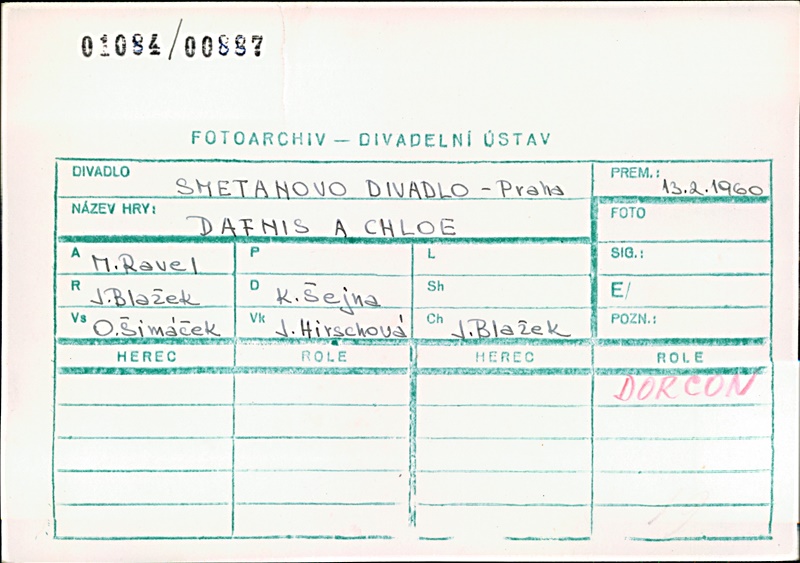 01084/00887
FOTOARCHIV – DIVADELNÍ ÚSTAV
DIVADLO SMETANOVO DIVADLO – Praha PREM.: 13.2.1960
NÁZEV HRY: DAFNIS A CHLOE FOTO
A M.Ravel P L SIG.:
R J.Blažek D K.Šejna Sh E/
Vs O.Šimáček Vk J.Hirschová Ch J.Blažek POZN.:
HEREC ROLE HEREC ROLE
DORCON